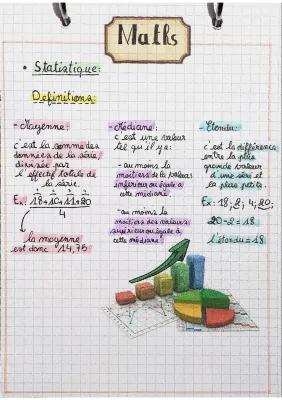 Maths
• Statistique:
Définitions:
- Moyenne:
c'est la somme des
données de la série,
divisée par
l'effectif totale de
la série.
Ex: 18+10+11+20
4
la moyenne
est donc 14,75
- Médiane:
c'est une valeur
tel qu'il y a:
- au moins la
moitiers de la valeurs
inférieur ou égale à
cette médiane.
- au moins la
moitiers des valeurs
supérieur ou égale à
cette médiane.
- Etendu:
c'est la différence
entre la plus
grande valeur
d'une série et
la plus petite.
Ex: 18; 2; 4; 20;
20-2=18
l'étendu=18